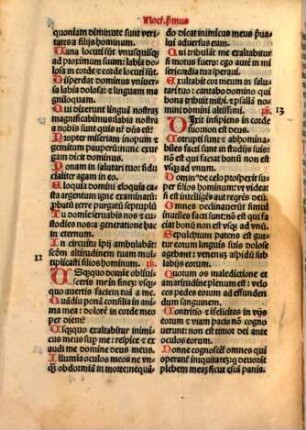 Noct. primus
quoniam diminute sunt veri
tates a filijs hominum.
Vana locuti sūt vnusquisq;
ad proximum suum: labia do
losa in corde et corde locuti sūt
Disperdat dominus vniuersa
labia dolosa: et linguam ma
gniloquam.
Qui dixerunt linguā nostraȝ
magnificabimus: labia nostra
a nobis sunt quis nr̄ dn̄s est?
Propter miseriam inopum et
gemitum pauperū: nunc exur
gam dicit dominus.
Ponam in salutari tuo: fidu
cialiter agam in eo.
Eloquia domini eloquia casta
argentum igne examinatū
p̄batū terre purgatū septuplū
Tu domie seruabis nos: et cu
stodies nos: a generatione hāc
in eternum.
In circuitu īpij ambulabāt:
scd̄m altitudinem tuam mul
tiplicasti filios hominum. ps.
12
Vsqquo domine obliui
sceris me in finem: vsq;
quo auertis faciem tuā a me.
Quādiu ponā consilia in aīa
mea: dolorē in corde meo
per diem?
Vsqquo exaltabitur inimi
cus meus sup me: respice et ex
audi me domine deus meus.
Illumīa oculos meos ne vn
q̄ȝ obdormiā in morte: nequā
do dicat inimicus meus p̄ua
lui aduersus eum.
Qui tribulāt me exaltabūtur
si motus fuero: ego autē in mi
sericordia tua speraui.
Exultabit cor meum in salu
tari tuo: cantabo domino qui
bona tribuit mihi: et psallā no
mini domini altissimi. ps.
13
Dixit insipiens in corde
suo: non est deus.
Corrupti sunt et abhomina
biles facti sunt in studijs suis:
nō est qui faciat bonū non est
vsq̄ȝ ad vnū.
Dominus de celo prospexit sup
filios hominum: vt videat si
est intelligēs aut requirēs deū
Omnes declinauerūt simul
inutiles facti sunt: nō est qui fa
ciat bonū nō est vsq̄ȝ ad vnū.
Sepulchrum patens est gut
tur eorum linguis suis dolose
agebant: venenū aspidū sub
labijs eorum.
Quorum os maledictione et
amaritudine plenum est: velo
ces pedes eorum ad effunden
dum sanguinem.
Contritio et īfelicitas in vijs
eorum et viam pacis nō cogno
uerunt: non est timor dei ante
oculos eorum.
Nonne cognoscēt omnes qui
operant iniquitatē: qui deuorāt
plebem meaȝ sicut escā panis.